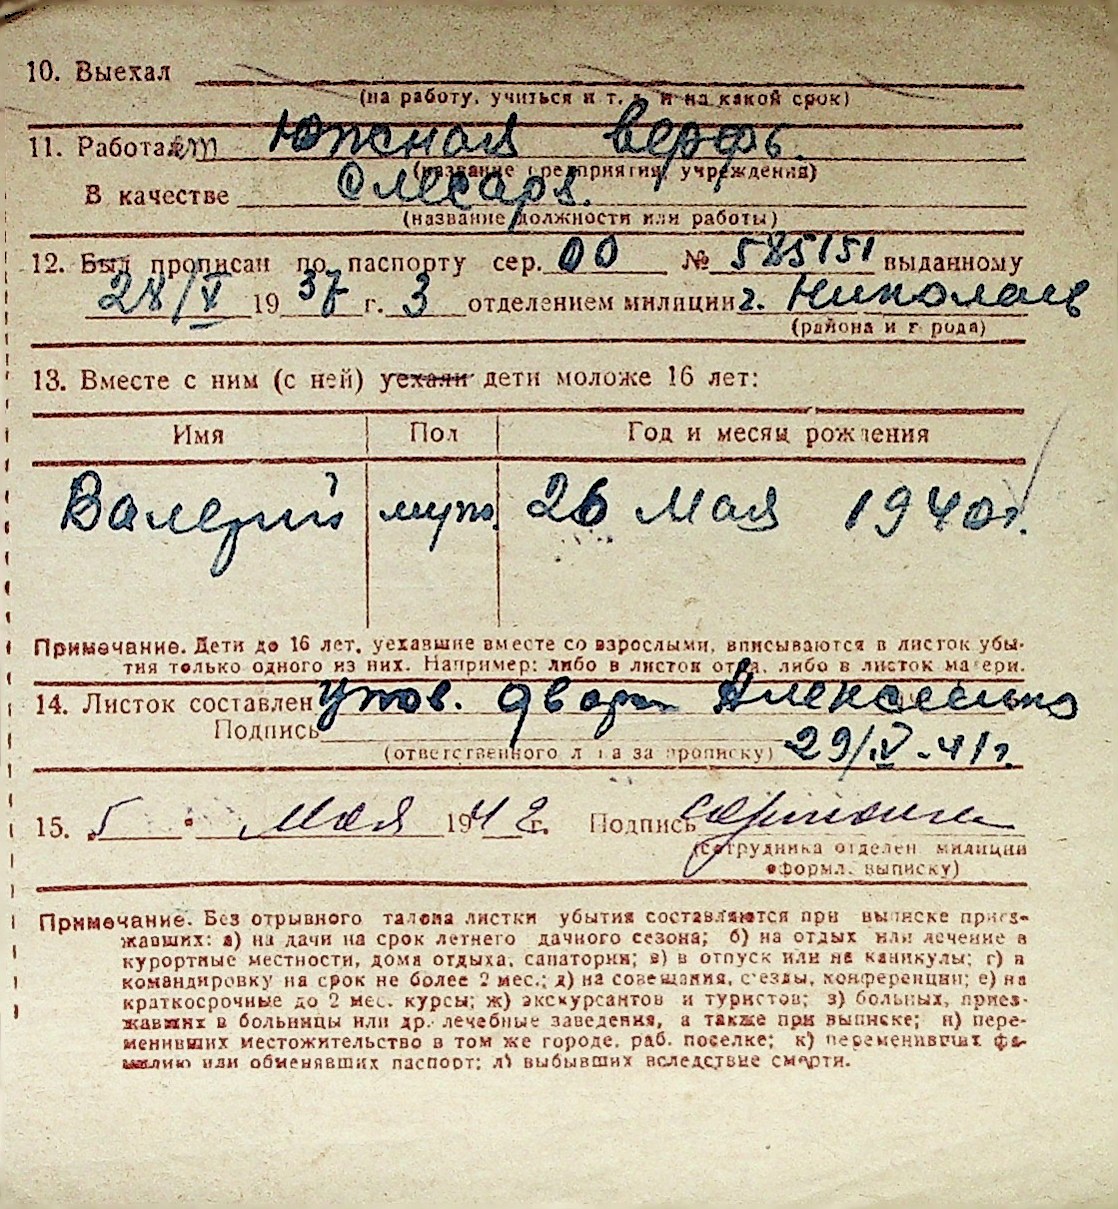 10. Выехал
(на работу, учиться и т. д. и на какой срок)
11. Работает Южная верфь.
(название предприятия, учреждения)
В качестве Слесаря.
(название должности или работы)
12. Был прописан по паспорту сер. 00 № 585151 выданному
28/V 1937 г. 3 отделением милиции г. Николаев
(района и города)
13. Вместе с ним (с ней) уехали дети моложе 16 лет:
Имя Пол Год и месяц рождения
Валерий муж. 26 Мая 1940г.
Примечание. Дети до 16 лет, уехавшие вместе со взрослыми, вписываются в листок убы-
тия только одного из них. Например: либо в листок отца, либо в листок матери.
14. Листок составлен двора Алексеенко
Подпись
(ответственного лица за прописку) 29/IV-41г.
15. 5 Мая 1942 г. Подпись
(сотрудника отделен. милиции
оформл. выписку)
Примечание. Без отрывного талона листки убытия составляются при выписке приез-
жавших: а) на дачи на срок летнего дачного сезона; б) на отдых или лечение в
курортные местности, дома отдыха, санатории; в) в отпуск или на каникулы; г) в
командировку на срок не более 2 мес.; д) на совещания, с'езды, конференции; е) на
краткосрочные до 2 мес. курсы; ж) экскурсантов и туристов; з) больных, приез-
жавших в больницы или др. лечебные заведения, а также при выписке; и) пере-
менивших местожительство в том же городе, раб. поселке; к) переменивших фа-
милию или обменявших паспорт; л) выбывших вследствие смерти.